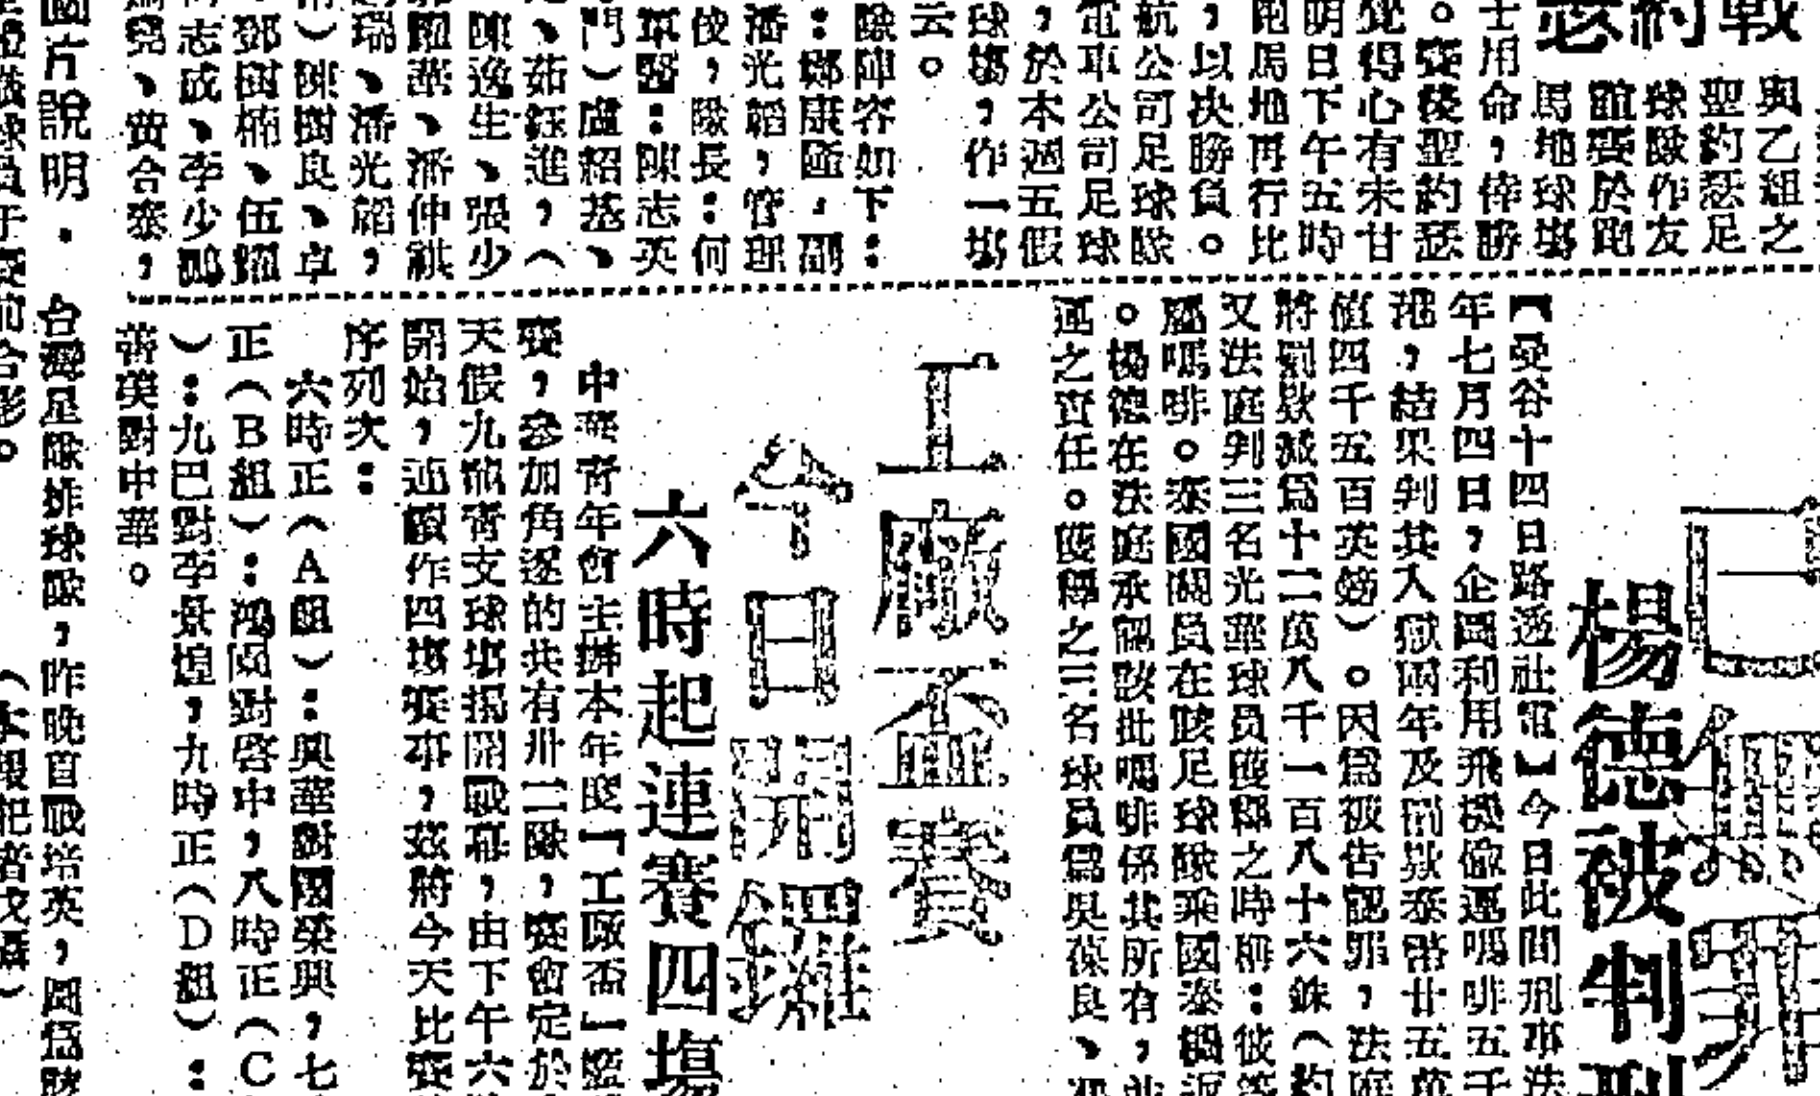 戰約
與乙組之
聖約瑟足
球隊作友
誼賽於跑
馬地球塲
士用命，倖勝
。賽後聖約瑟
覺得心有未甘
明日下午五時
跑馬地再行比
，以决勝負。
航公司足球隊
電車公司足球
，於本週五假
球塲，作一塲
云。
隊陣容如下：
：鄭康匯，副
潘光韜，管理
俊，隊長：何
軍醫：陳志英
門）盧紹基、
、茹鈺進，（
陳逸生、張少
耀華、潘仲祺
瑞、潘光韜，
）陳樹良、卓
鄧樹楠、伍耀
志成、李少鵬
、黃合泰，
楊德被判刑
【曼谷十四日路透社電】今日此間刑事法
年七月四日，企圖利用飛機偷運嗎啡五千
港，結果判其入獄兩年及罰欵泰幣廿五萬
值四千五百英鎊）。因爲被告認罪，法庭
將罰欵減爲十二萬八千一百八十六銖（約
又法庭判三名光華球員獲釋之時稱：彼等
屬嗎啡。泰國關員在該足球隊乘國泰機返
。楊德在法庭承認該批嗎啡係其所有，並
運之責任。獲釋之三名球員爲吳葆良、
工廠盃賽
今日開鑼
六時起連賽四塲
中華青年會主辦本年度「工廠盃」籃
賽，參加角逐的共有卅二隊，賽會定於
天假九龍青支球塲揭開戰幕，由下午六
開始，連續作四塲賽事，茲將今天比賽
序列次：
六時正（A組）：興華對國榮興，七
正（B組）：鴻圖對啓中，八時正（C
）：九巴對李景煌，九時正（D組）：
善美對中華。
國片說明．台灣星隊排球隊，昨晚首戰培英，圖爲該
前合影。（本報記者攝）